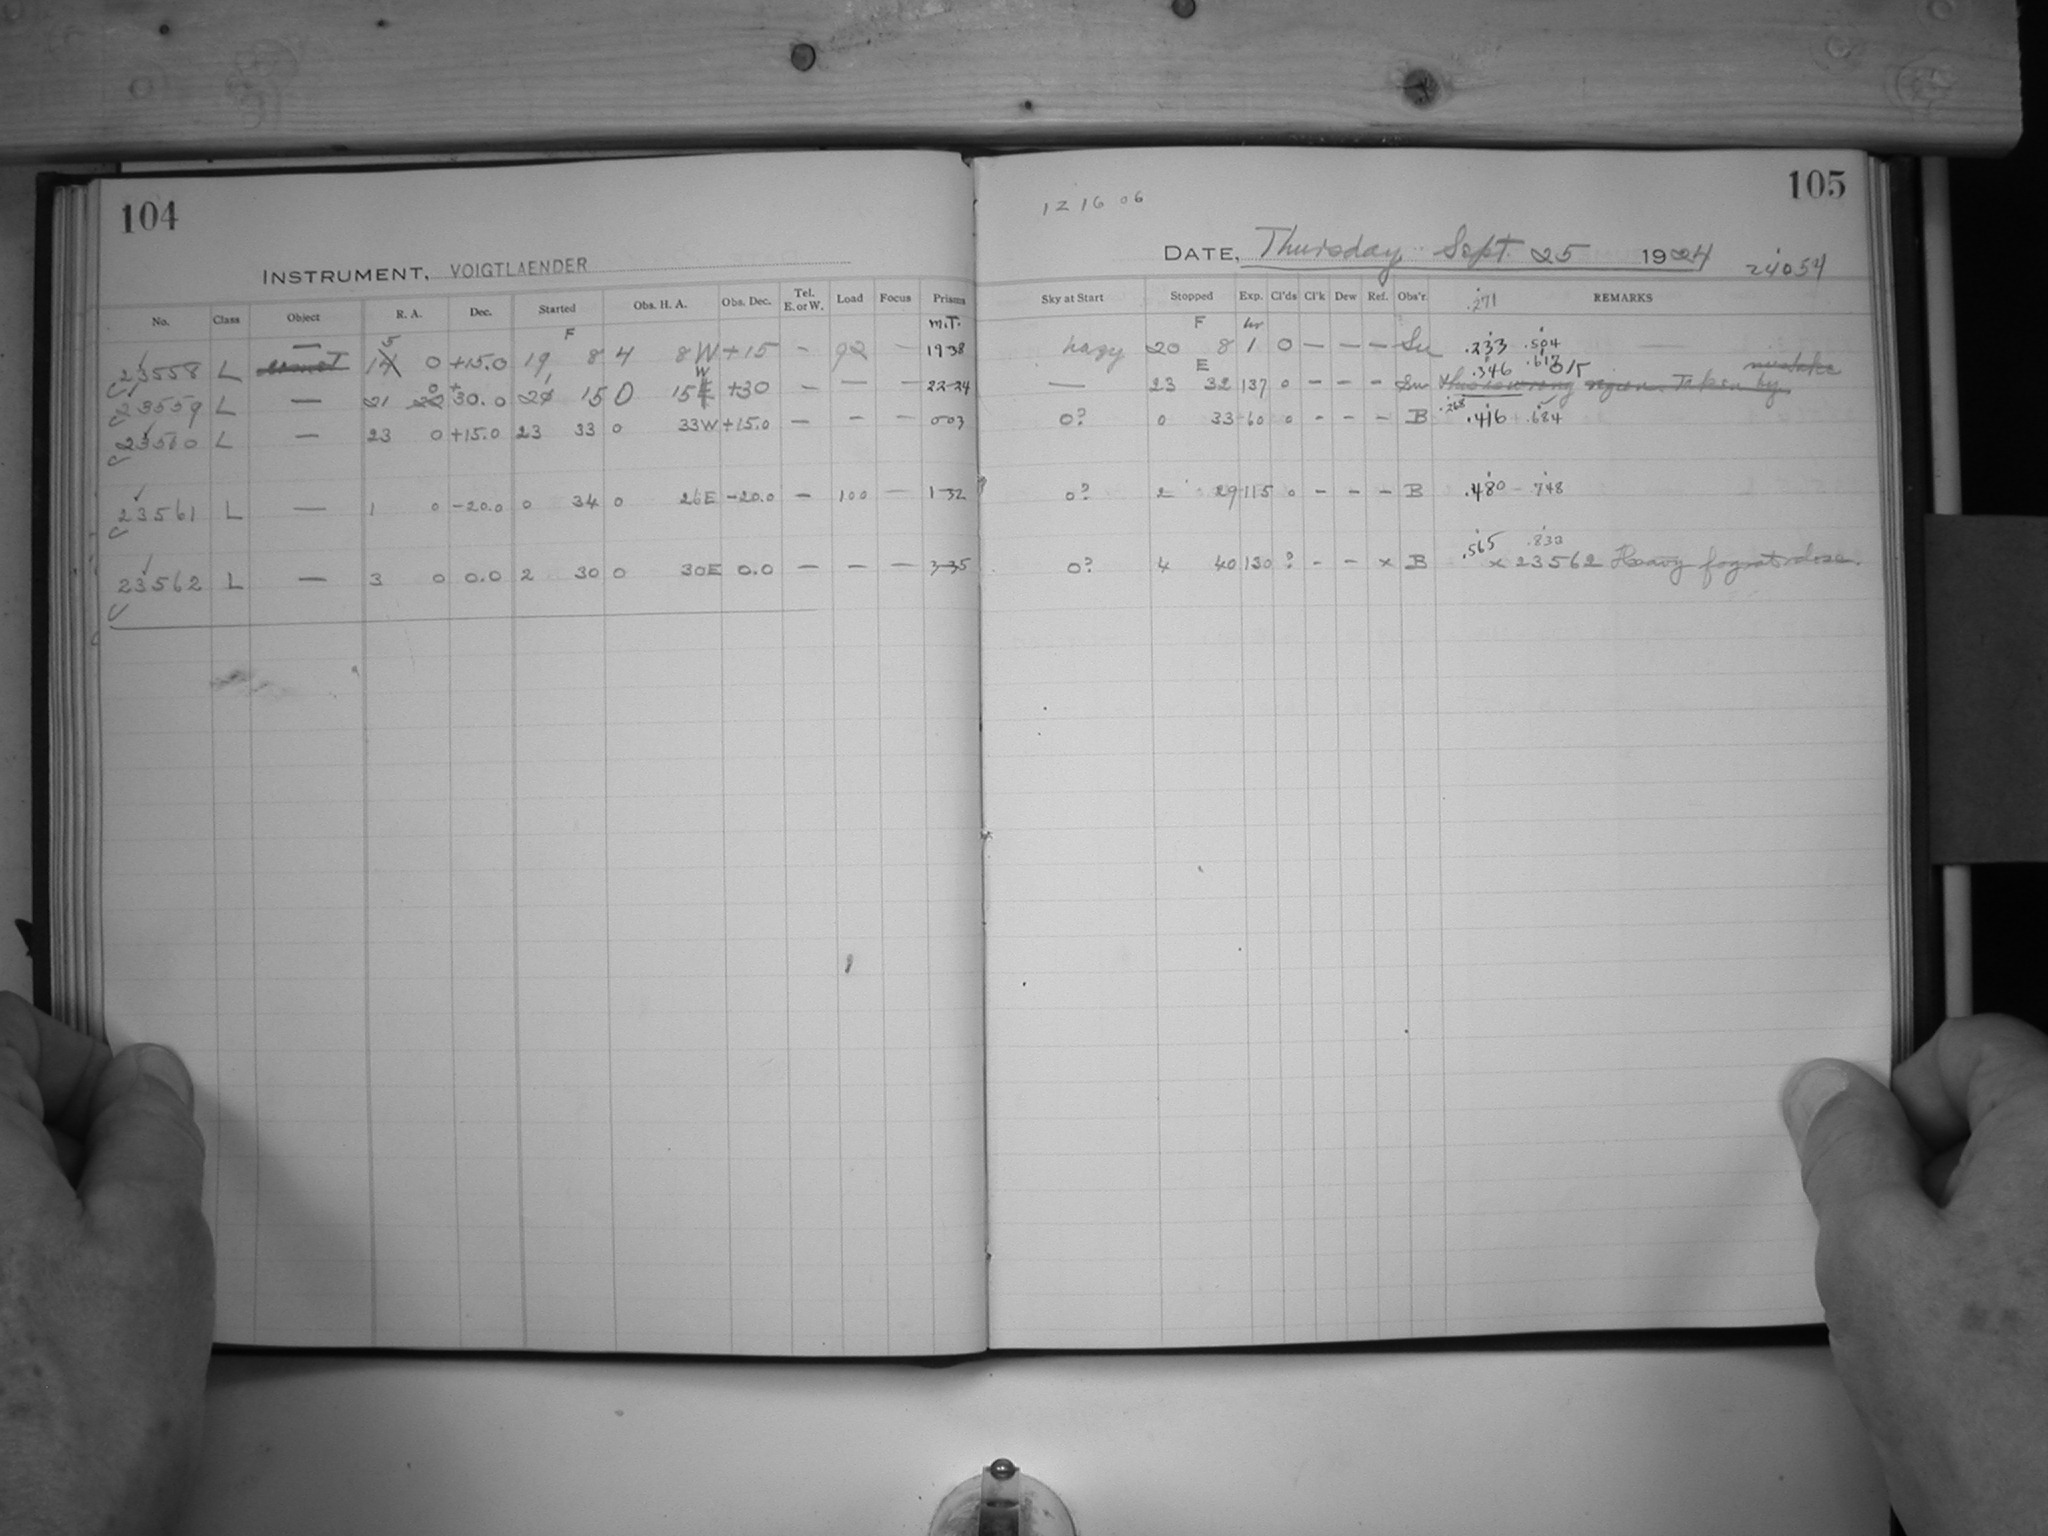 104
INSTRUMENT, VOIGTLAENDER
No. Class Object R. A. Dec. Started Obs. H. A. Obs. Dec. Tel. E. or W. Load Focus Prisms
F M.T.
23558 L — 5 0 +15.0 19 8 4 8 W +15 — 92 — 1938
23559 L — 21 0 +30.0 21 15 0 15 W +30 — — — 22 24
23560 L — 23 0 +15.0 23 33 0 33W +15.0 — — — 003
23561 L — 1 0 -20.0 0 34 0 26E -20.0 — 100 — 1 32
23562 L — 3 0 0.0 2 30 0 30E 0.0 — — — 3 35
12 16 06
105
DATE, Thursday Sept. 25 1924 24054
Sky at Start Stopped Exp. Cl'ds Cl'k Dew Ref. Obs'r. .271 REMARKS
F hr
hazy 20 8 1 0 — — — Su .233 .504
E .346 .617 015
— 23 32 137 0 — — — Su This is wrong region. Taken by mistake
0? 0 33 60 0 — — — B .268 .416 .684
0? 2 29 115 0 — — — B .480 - .748
.565 .833
0? 4 40 130 ? — — x B x 23562 Heavy fog at close.